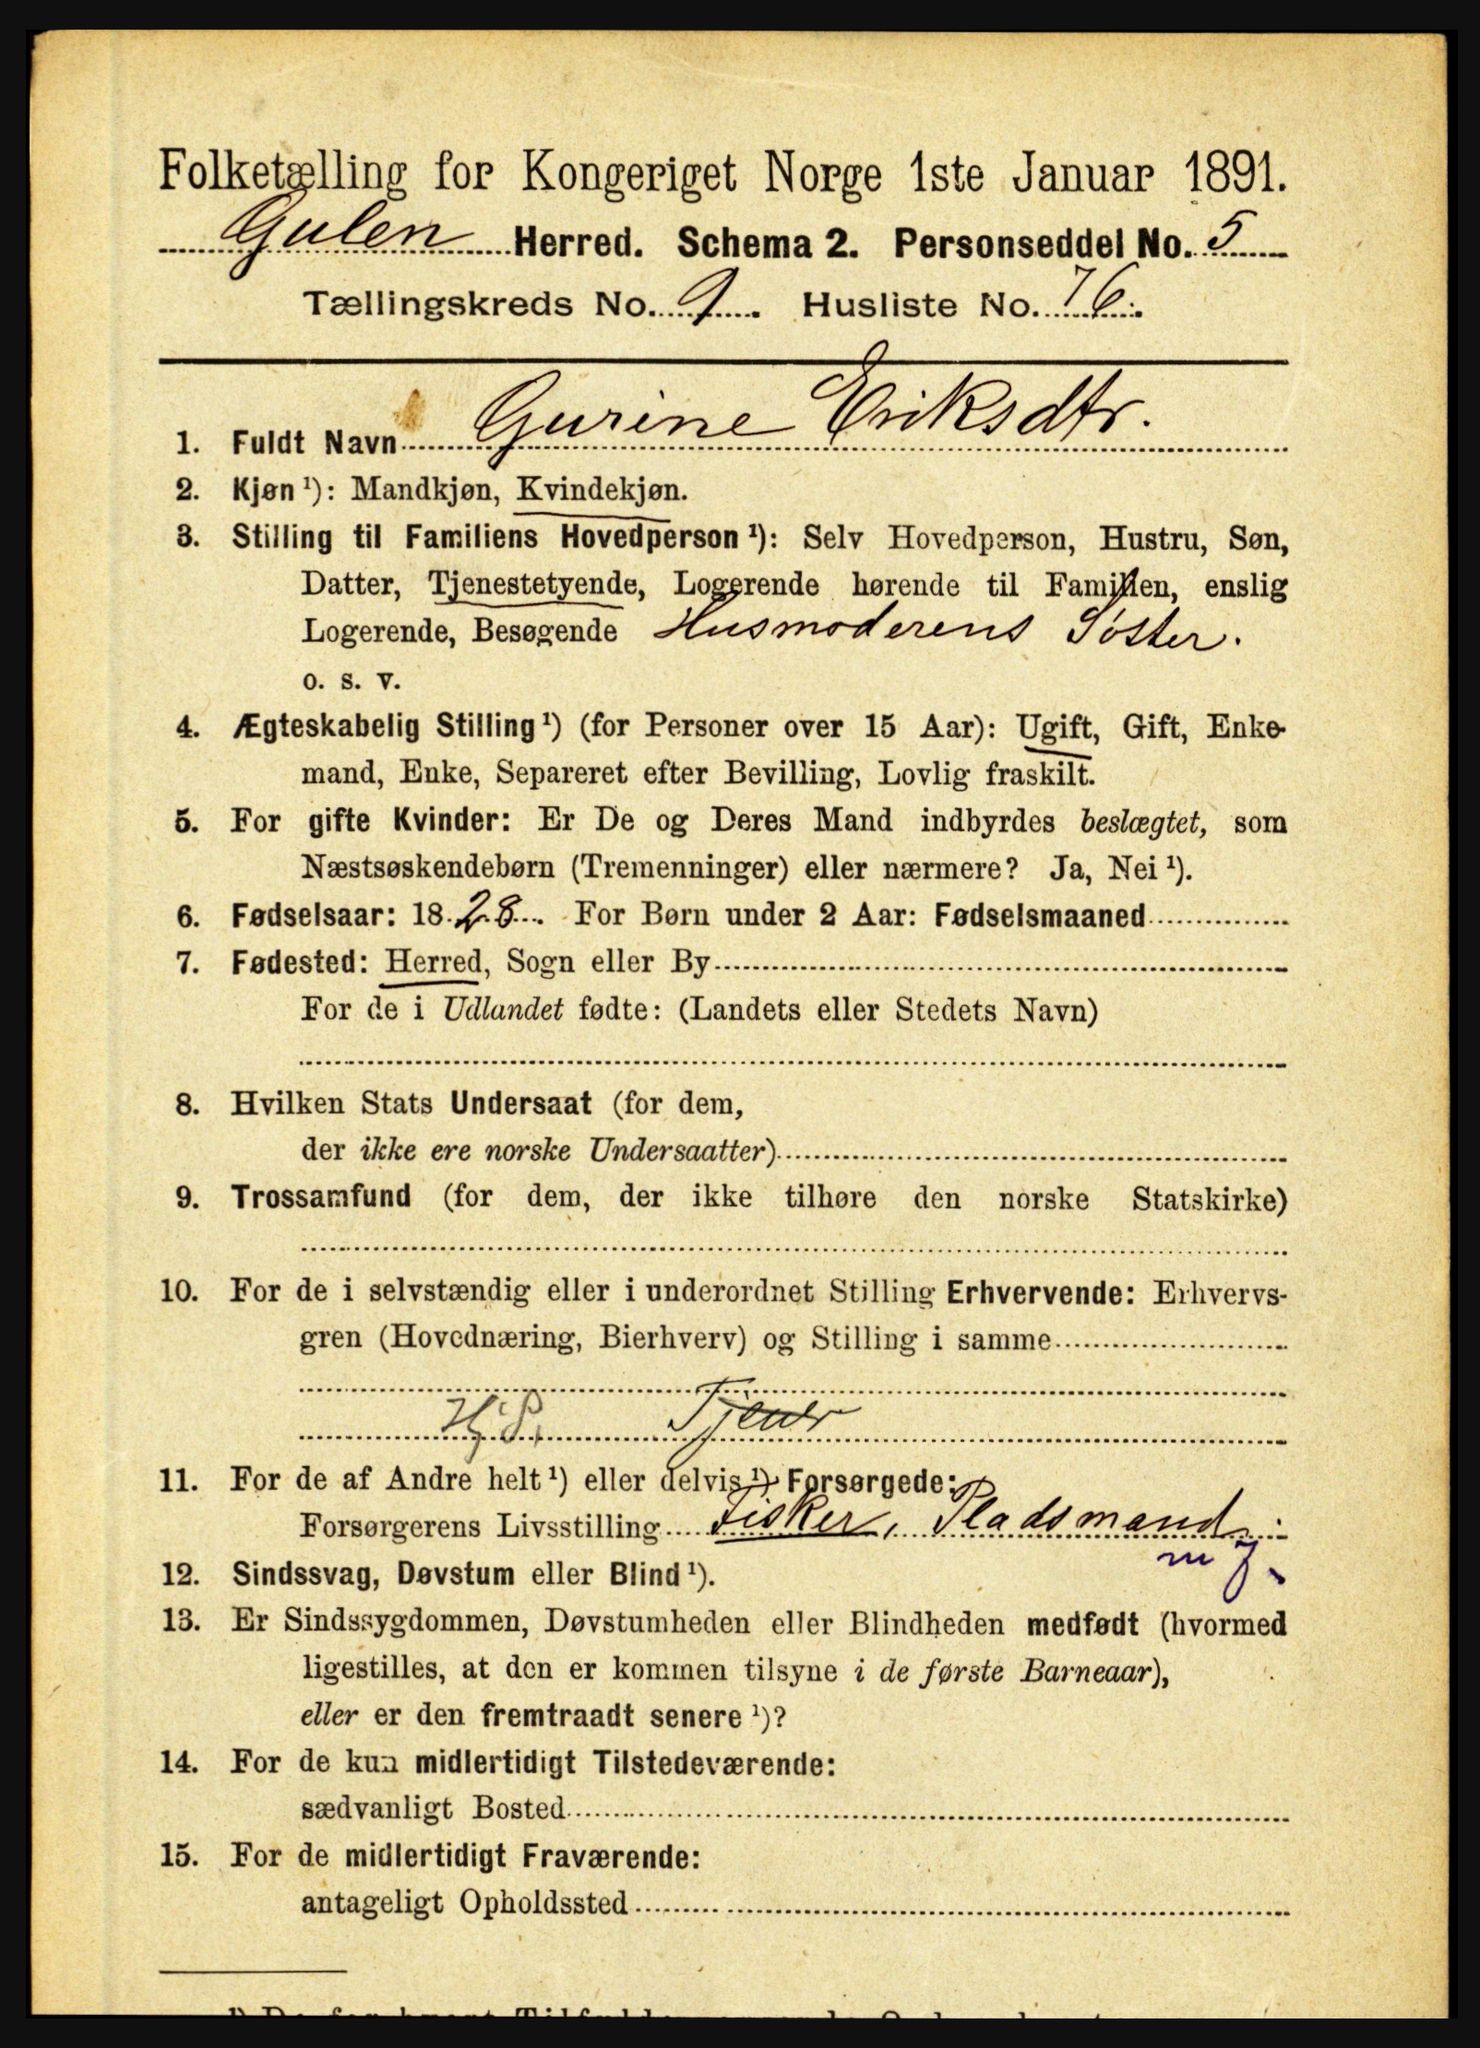 Folketælling for Kongeriget Norge 1ste Januar 1891.
Gulen Herred. Schema 2. Personseddel No. 5
Tællingskreds No. 9. Husliste No. 76.
1. Fuldt Navn Gurine Eriksdtr.
2. Kjøn ¹): Mandkjøn, Kvindekjøn.
3. Stilling til Familiens Hovedperson ¹): Selv Hovedperson, Hustru, Søn,
Datter, Tjenestetyende, Logerende hørende til Familien, enslig
Logerende, Besøgende Husmoderens Søster.
o. s. v.
4. Ægteskabelig Stilling ¹) (for Personer over 15 Aar): Ugift, Gift, Enke-
mand, Enke, Separeret efter Bevilling, Lovlig fraskilt.
5. For gifte Kvinder: Er De og Deres Mand indbyrdes beslægtet, som
Næstsøskendebørn (Tremenninger) eller nærmere? Ja, Nei ¹).
6. Fødselsaar: 1828. For Børn under 2 Aar: Fødselsmaaned
7. Fødested: Herred, Sogn eller By
For de i Udlandet fødte: (Landets eller Stedets Navn)
8. Hvilken Stats Undersaat (for dem,
der ikke ere norske Undersaatter)
9. Trossamfund (for dem, der ikke tilhøre den norske Statskirke)
10. For de i selvstændig eller i underordnet Stilling Erhvervende: Erhvervs-
gren (Hovednæring, Bierhverv) og Stilling i samme
Tjener
11. For de af Andre helt ¹) eller delvis ¹) Forsørgede:
Forsørgerens Livsstilling Fisker, Pladsmand
m J.
12. Sindssvag, Døvstum eller Blind ¹).
13. Er Sindssygdommen, Døvstumheden eller Blindheden medfødt (hvormed
ligestilles, at den er kommen tilsyne i de første Barneaar),
eller er den fremtraadt senere ¹)?
14. For de kun midlertidigt Tilstedeværende:
sædvanligt Bosted
15. For de midlertidigt Fraværende:
antageligt Opholdssted